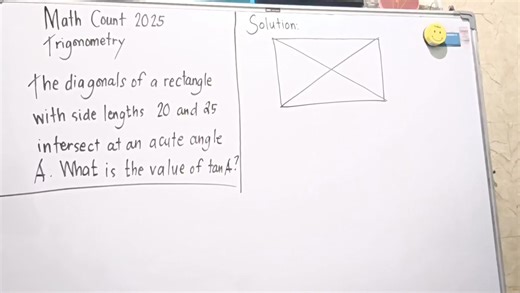 Math Count 2025
Trigonometry
The diagonals of a rectangle
with side lengths 20 and 25
intersect at an acute angle
A. What is the value of tan A?
Solution: